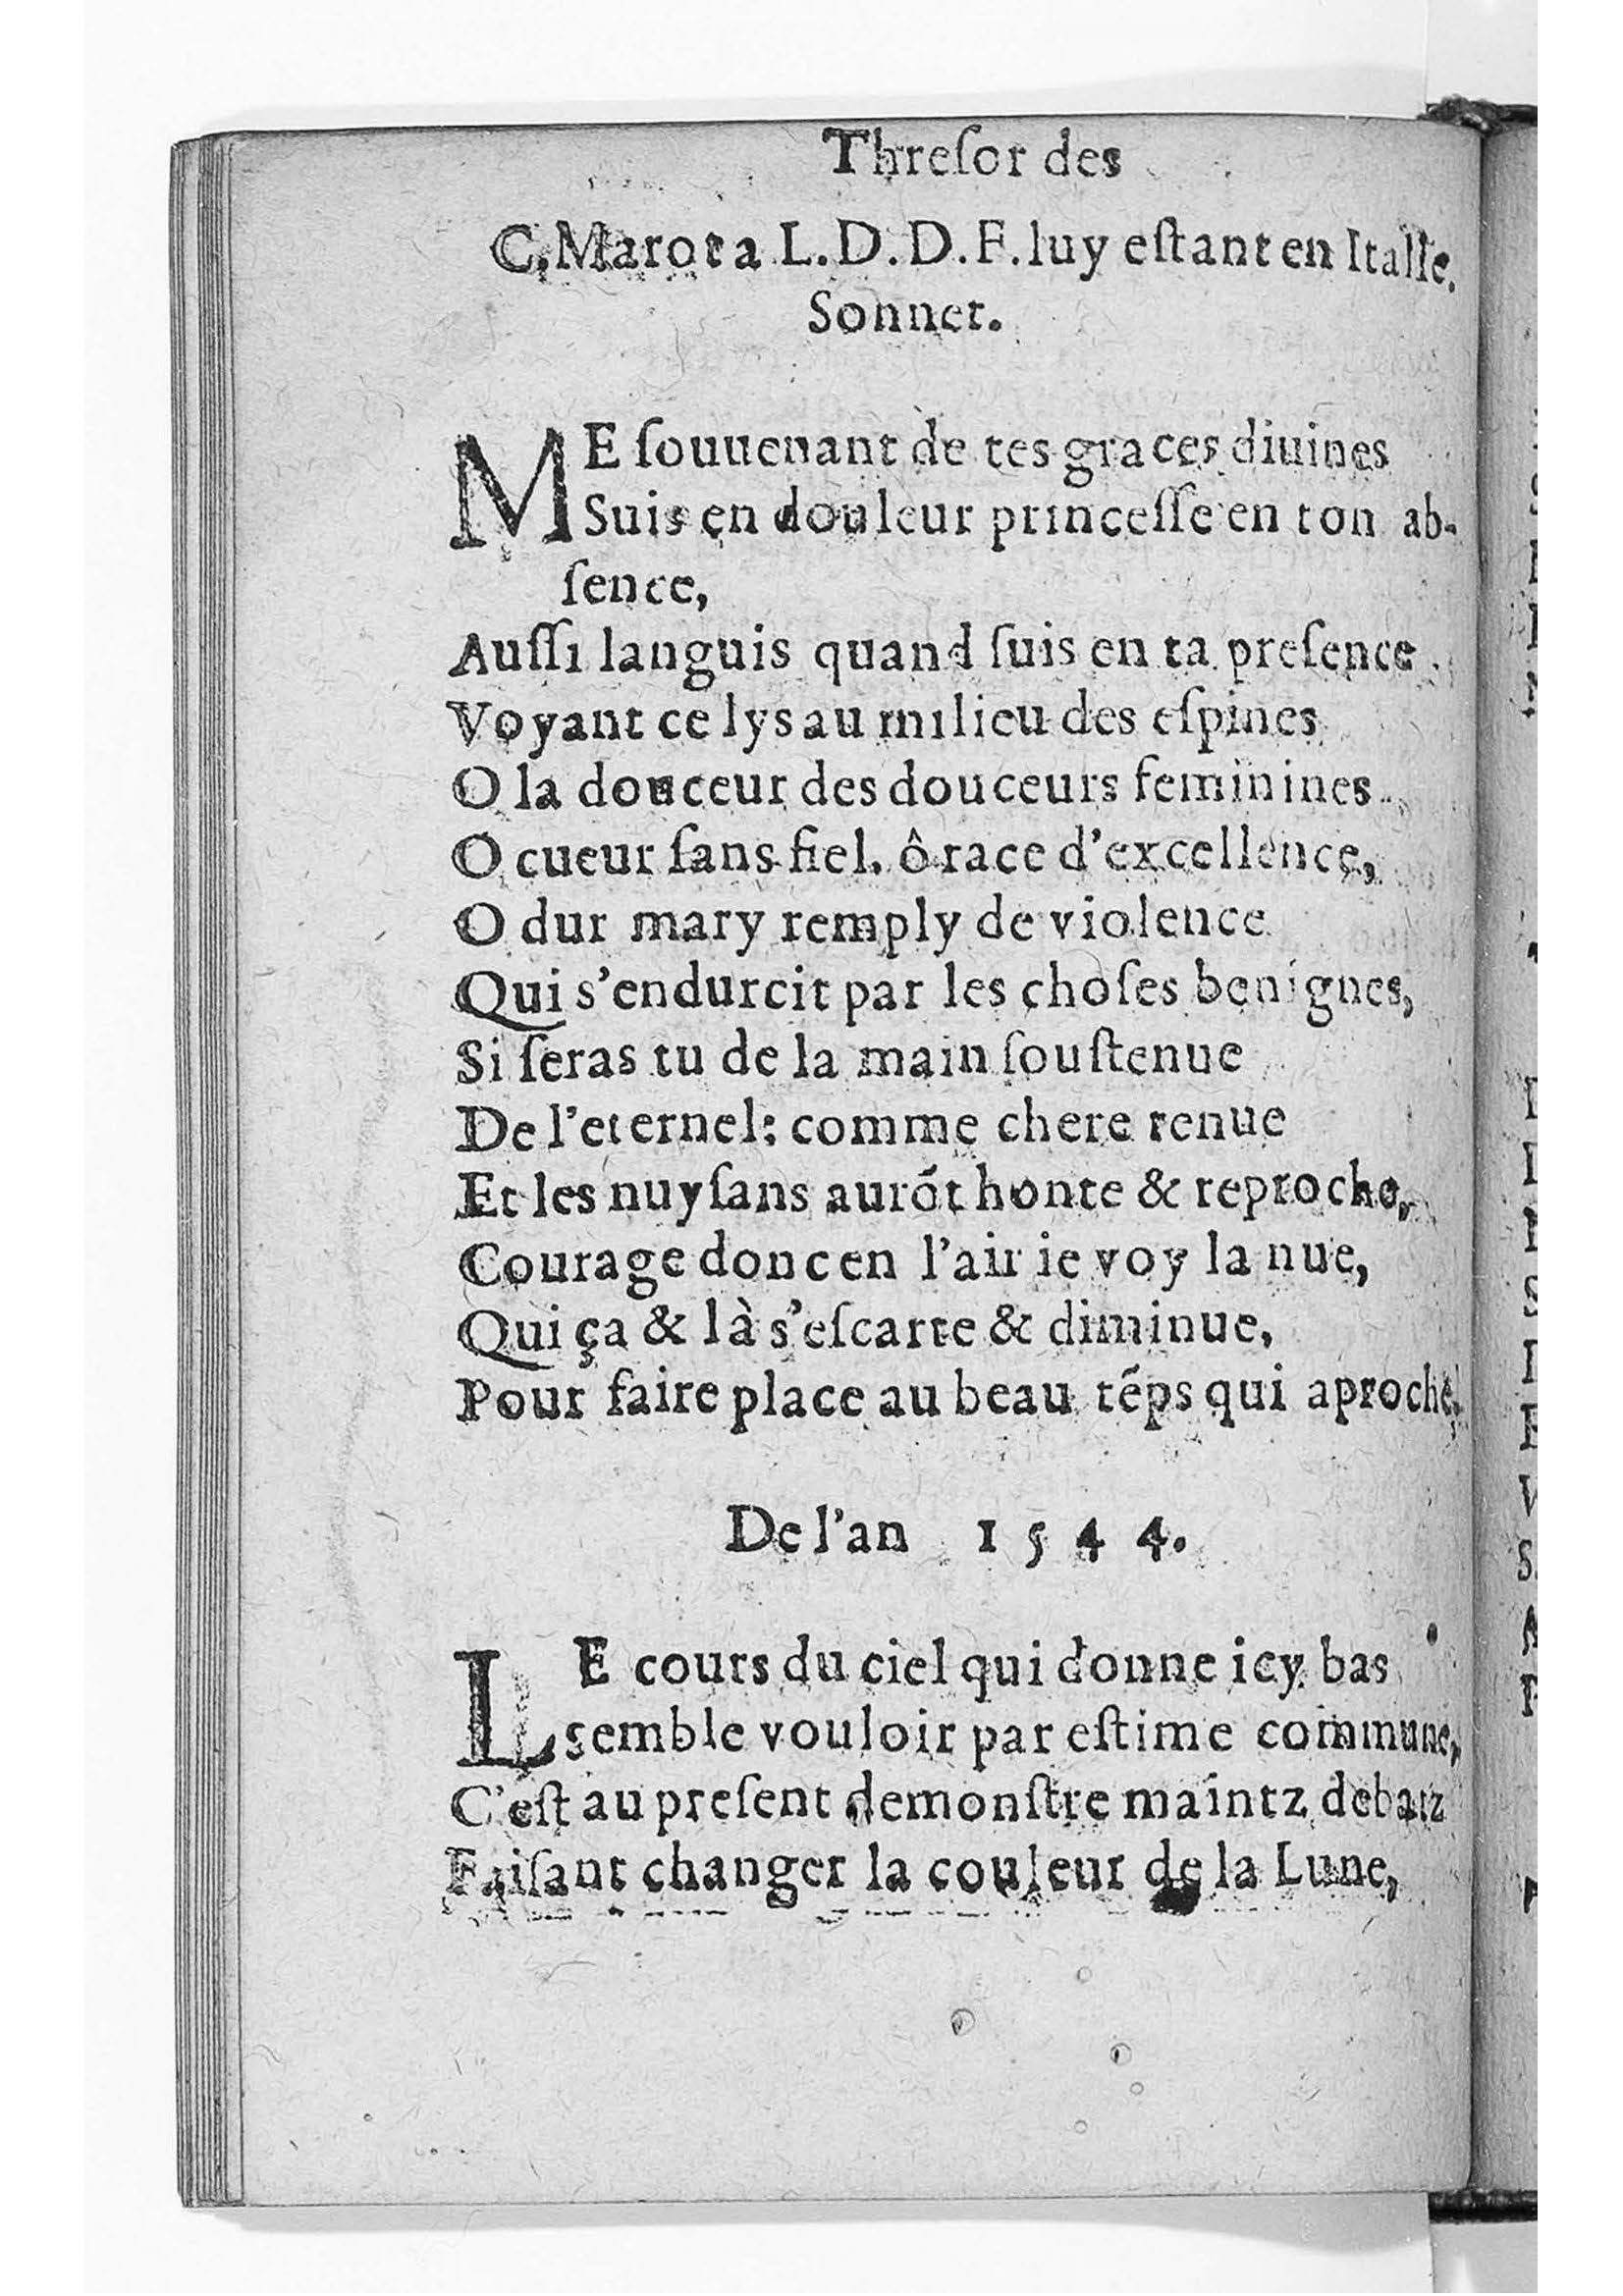 Threſor des
C. Marot a L. D. D. F. luy eſtant en Italie.
Sonnet.
ME ſouuenant de tes graces diuines
Suis en douleur princeſſe en ton ab-
ſence,
Auſſi languis quand ſuis en ta preſence
Voyant ce lys au milieu des eſpines
O la douceur des douceurs feminines
O cueur ſans fiel, ô race d'excellence,
O dur mary remply de violence
Qui s'endurcit par les choſes benignes,
Si ſeras tu de la main ſouſtenue
De l'eternel: comme chere tenue
Et les nuyſans aurõt honte & reproche,
Courage donc en l'air ie voy la nue,
Qui ça & là s'eſcarte & diminue,
Pour faire place au beau tẽps qui aproche,
De l'an 1544.
LE cours du ciel qui donne icy bas
semble vouloir par eſtime commune,
C'eſt au preſent demonſtre maintz debatz
Faiſant changer la couleur de la Lune,